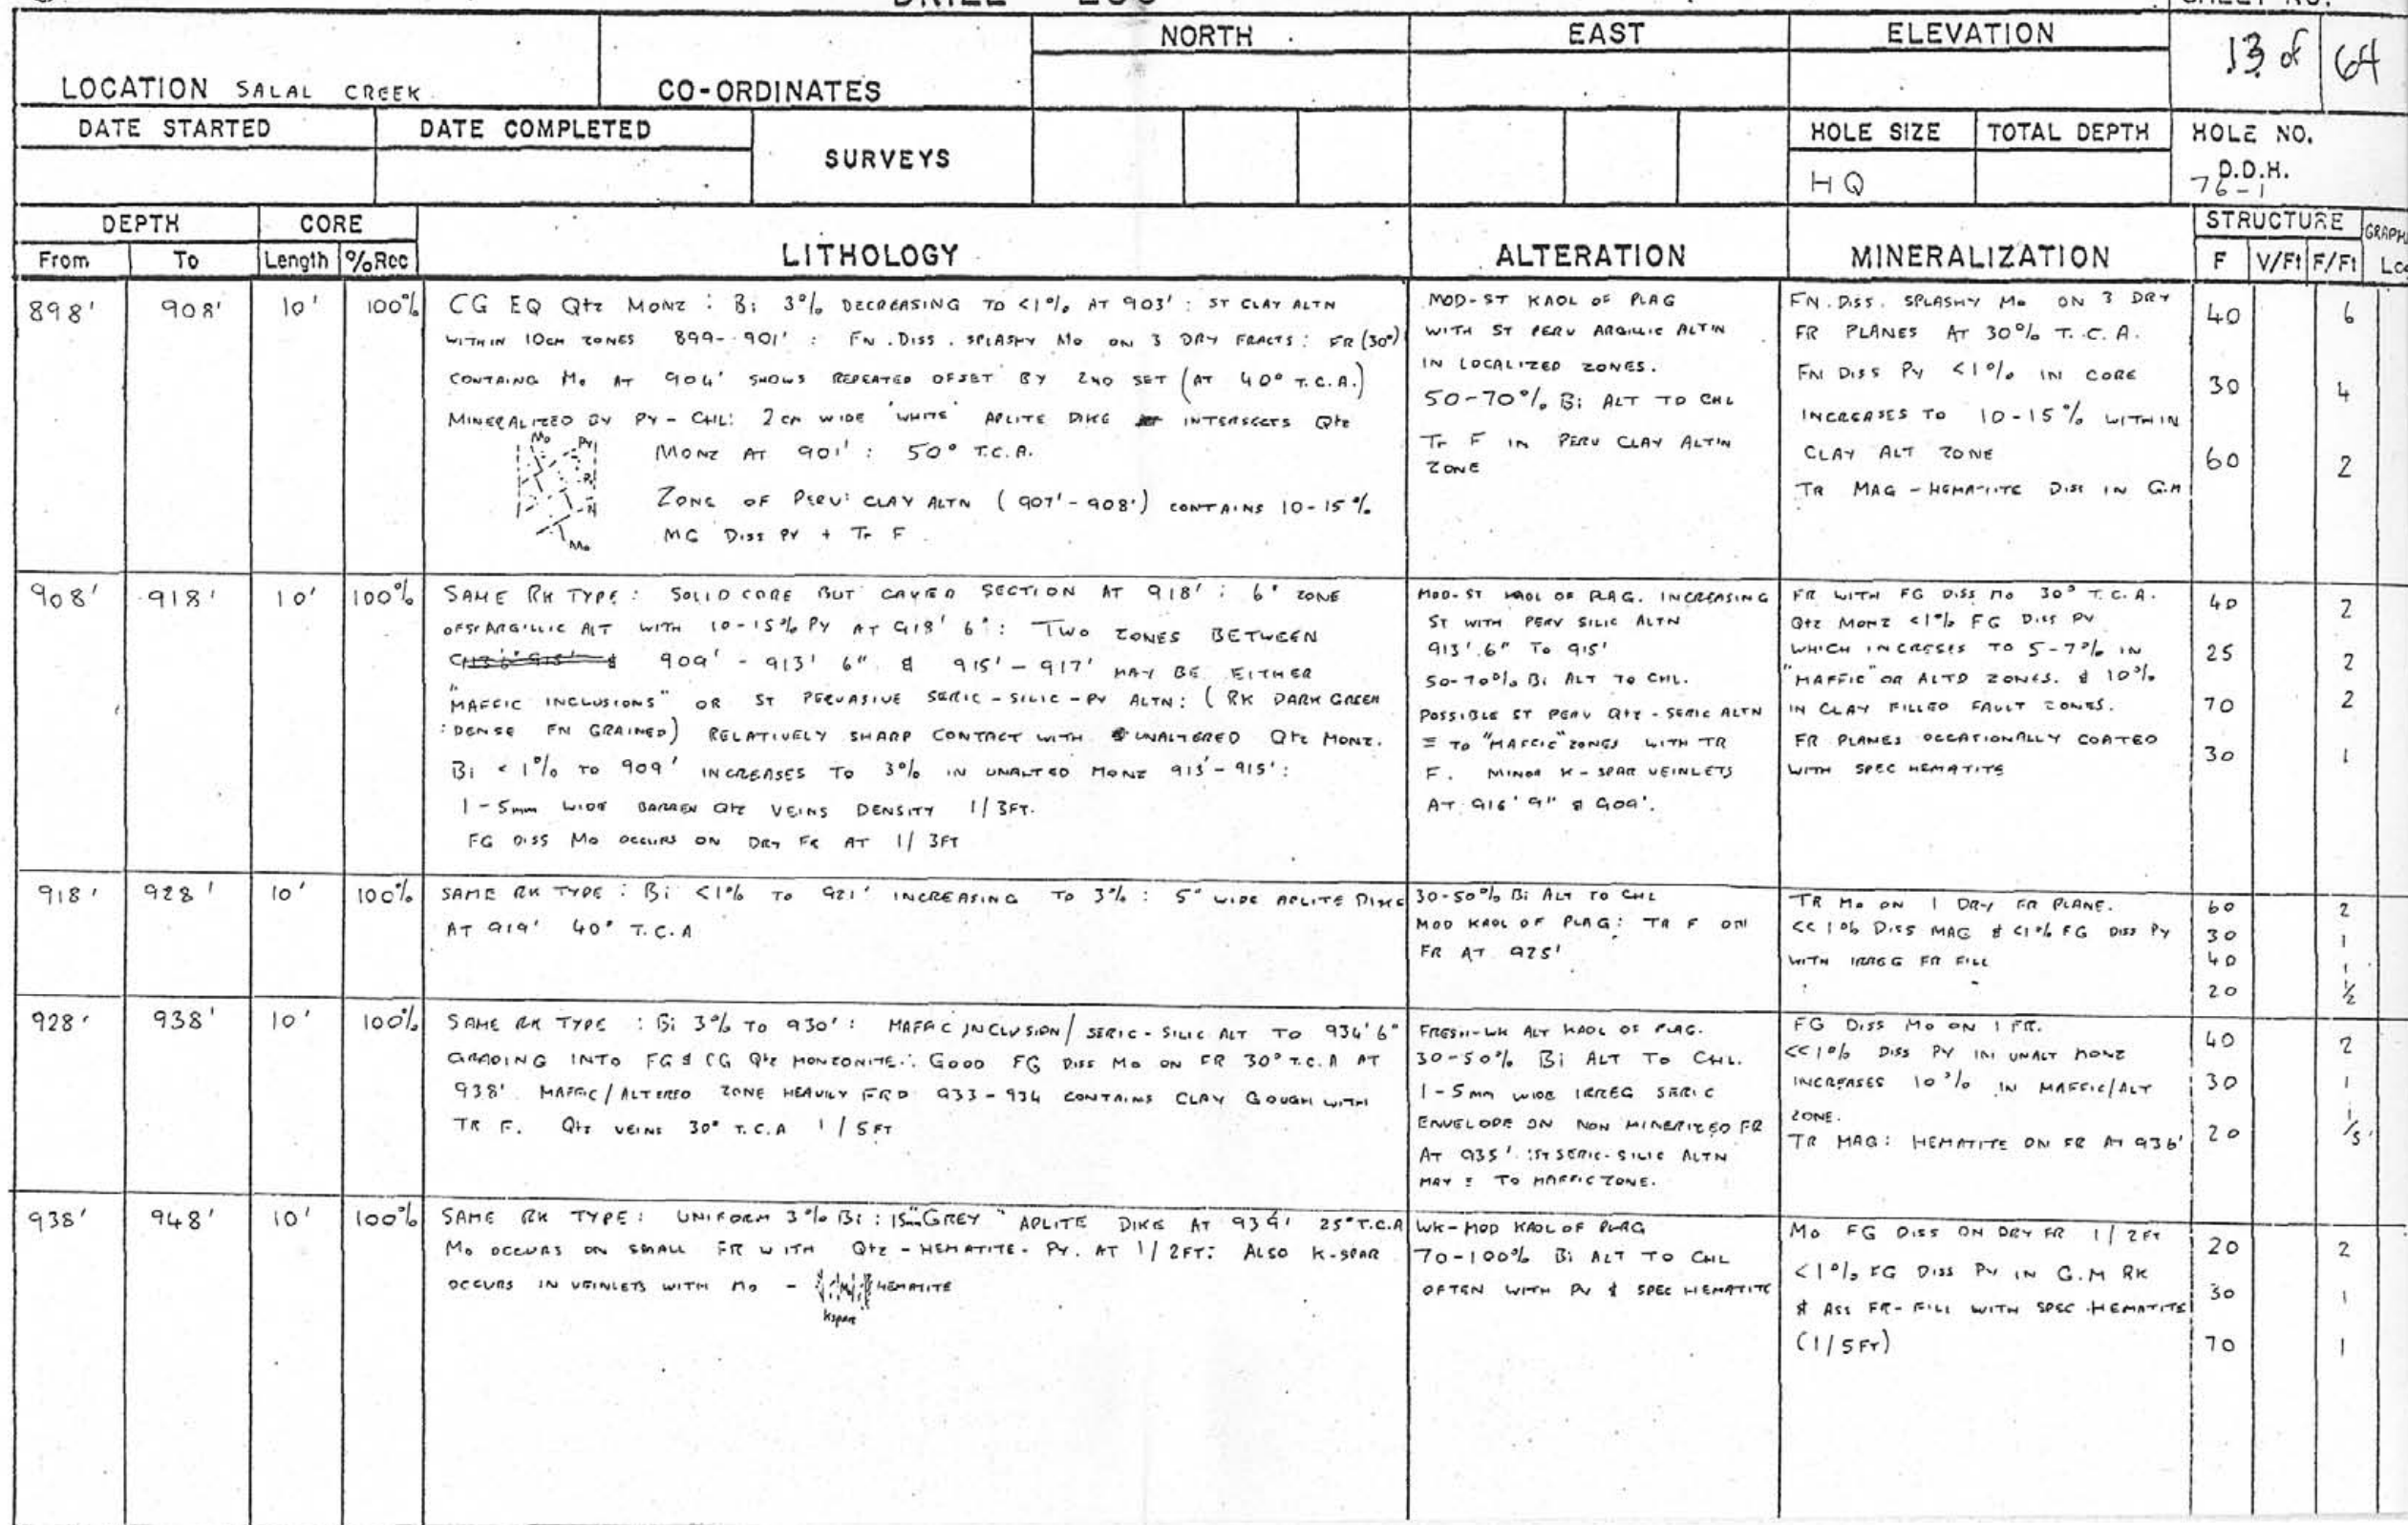 DRILL LOG
SHEET NO.
NORTH
EAST
ELEVATION
13 of 64
LOCATION SALAL CREEK
CO-ORDINATES
DATE STARTED
DATE COMPLETED
SURVEYS
HOLE SIZE
TOTAL DEPTH
HOLE NO.
HQ
D.D.H.
76-1
DEPTH
CORE
LITHOLOGY
ALTERATION
MINERALIZATION
STRUCTURE
From
To
Length
%Rec
F
V/Ft
F/Ft
898'
908'
10'
100%
CG EQ Qtz MONZ : Bi 3% DECREASING TO <1% AT 903' : ST CLAY ALTN
WITHIN 10CM ZONES 899-901' : FN. DISS. SPLASHY Mo ON 3 DRY FRACTS: FR (30°)
CONTAING Mo AT 904' SHOWS REPEATED OFSET BY 2ND SET (AT 40° T.C.A.)
MINERALIZED BY PY - CHL: 2 cm WIDE 'WHITE' APLITE DIKE INTERSECTS Qtz
MONZ AT 901' : 50° T.C.A.
ZONE OF PERV: CLAY ALTN (907'-908') CONTAINS 10-15%
MG DISS PY + Tr F.
Mo
Py
Mo
MOD-ST KAOL OF PLAG
WITH ST PERV ARGILLIC ALTN
IN LOCALIZED ZONES.
50-70% Bi ALT TO CHL
Tr F IN PERV CLAY ALTN
ZONE
FN. DISS. SPLASHY Mo ON 3 DRY
FR PLANES AT 30% T.C.A.
FN DISS PY <1% IN CORE
INCREASES TO 10-15% WITHIN
CLAY ALT ZONE
TR MAG - HEMATITE DISS IN G.M
40 6
30 4
60 2
908'
918'
10'
100%
SAME RK TYPE: SOLID CORE BUT CAVED SECTION AT 918' : 6" ZONE
OF ST ARGILLIC ALT WITH 10-15% PY AT 918' 6": TWO ZONES BETWEEN
909' - 913' 6" & 915' - 917' MAY BE EITHER
"MAFFIC INCLUSIONS" OR ST PERVASIVE SERIC - SILIC - PY ALTN: (RK DARK GREEN
: DENSE FN GRAINED) RELATIVELY SHARP CONTACT WITH UNALTERED Qtz MONZ.
Bi <1% TO 909' INCREASES TO 3% IN UNALTED MONZ 913'-915':
1-5mm WIDE BARREN Qtz VEINS DENSITY 1/3FT.
FG DISS Mo OCCURS ON DRY FR AT 1/3FT
MOD-ST KAOL OF PLAG. INCREASING
ST WITH PERV SILIC ALTN
913'.6" TO 915'
50-70% Bi ALT TO CHL.
POSSIBLE ST PERV Qtz-SERIC ALTN
= TO "MAFFIC" ZONES WITH TR
F. MINOR K-SPAR VEINLETS
AT 916' 9" & 909'.
FR WITH FG DISS Mo 30° T.C.A.
Qtz MONZ <1% FG DISS PY
WHICH INCRESES TO 5-7% IN
"MAFFIC" OR ALTD ZONES. & 10%
IN CLAY FILLED FAULT ZONES.
FR PLANES OCCATIONALLY COATED
WITH SPEC HEMATITE
40 2
25 2
70 2
30 1
918'
928'
10'
100%
SAME RK TYPE : Bi <1% TO 921' INCREASING TO 3% : 5" WIDE APLITE DIKE
AT 919' 40° T.C.A
30-50% Bi ALT TO CHL
MOD KAOL OF PLAG: TR F ON
FR AT 925'
TR Mo ON 1 DRY FR PLANE.
<<1% DISS MAG & <1% FG DISS PY
WITH IRREG FR FILL
60 2
30 1
40 1
20 1/2
928'
938'
10'
100%
SAME RK TYPE : Bi 3% TO 930' : MAFFIC INCLUSION/SERIC-SILIC ALT TO 934'6"
GRADING INTO FG & CG Qtz MONZONITE: GOOD FG DISS Mo ON FR 30° T.C.A AT
938' MAFFIC/ALTERED ZONE HEAVILY FRD 933-934 CONTAINS CLAY GOUGH WITH
TR F. Qtz VEINS 30° T.C.A 1/5FT
FRESH-WK ALT KAOL OF PLAG.
30-50% Bi ALT TO CHL.
1-5mm WIDE IRREG SERIC
ENVELOPE ON NON MINERIZED FR
AT 935' : ST SERIC-SILIC ALTN
MAY = TO MAFFIC ZONE.
FG DISS Mo ON 1 FR.
<<1% DISS PY IN UNALT MONZ
INCREASES 10% IN MAFFIC/ALT
ZONE.
TR MAG: HEMATITE ON FR AT 936'
40 2
30 1
20 1/5
938'
948'
10'
100%
SAME RK TYPE: UNIFORM 3% Bi : 15mm "GREY" APLITE DIKE AT 939' 25° T.C.A
Mo OCCURS ON SMALL FR WITH Qtz - HEMATITE - PY. AT 1/2FT: ALSO K-SPAR
OCCURS IN VEINLETS WITH Mo - HEMATITE
Kspar
WK-MOD KAOL OF PLAG
70-100% Bi ALT TO CHL
OFTEN WITH PY & SPEC HEMATITE
Mo FG DISS ON DRY FR 1/2FT
<1% FG DISS PY IN G.M RK
& ASS FR-FILL WITH SPEC HEMATITE
(1/5FT)
20 2
30 1
70 1